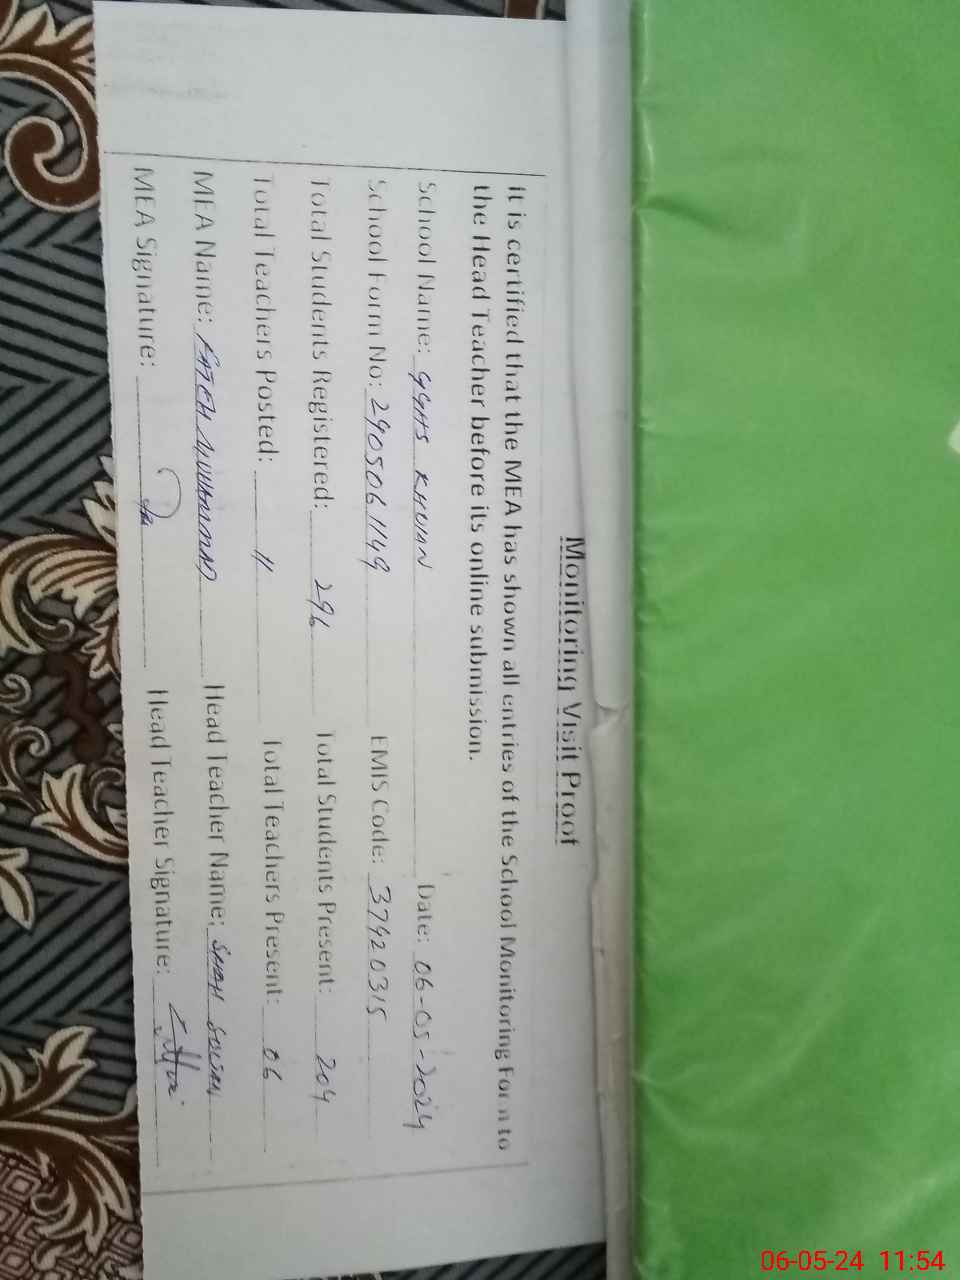 Monitoring Visit Proof
It is certified that the MEA has shown all entries of the School Monitoring Form to
the Head Teacher before its online submission.
School Name: GGHS KHUIAN Date: 06-05-2024
School Form No: 2905061149 EMIS Code: 37420315
Total Students Registered: 296 Total Students Present: 204
Total Teachers Posted: 11 Total Teachers Present: 06
MEA Name: FATEH MUHAMMAD Head Teacher Name: SHAH
MEA Signature: Head Teacher Signature:
06-05-24 11:54